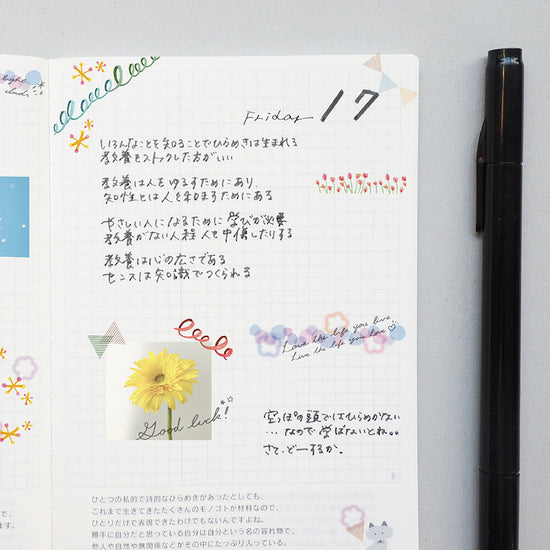 light
clouds
Friday 17
いろんなことを知ることでひらめきは生まれる
教養をストックした方がいい
教養は人をゆるすためにあり、
知性とは人を和ますためにある
やさしい人になるために 学びが必要
教養がない人程 人を中傷したりする
教養は心の広さである
センスは知識でつくられる
Love the life you live.
Live the life you love
Good luck!
空っぽの頭ではひらめかない
…なので学ばないとね。。
さて、どーするか。
8
ひとつの私的で詩的なひらめきがあったとしても、
これまで生きてきたたくさんのモノゴトが材料なので、
ひとりだけで表現できたわけでもないんですよね。
勝手に自分だと思っている自分は自分という名の容れ物で、
他人や自然や無関係などがその中にたっぷり入っている。